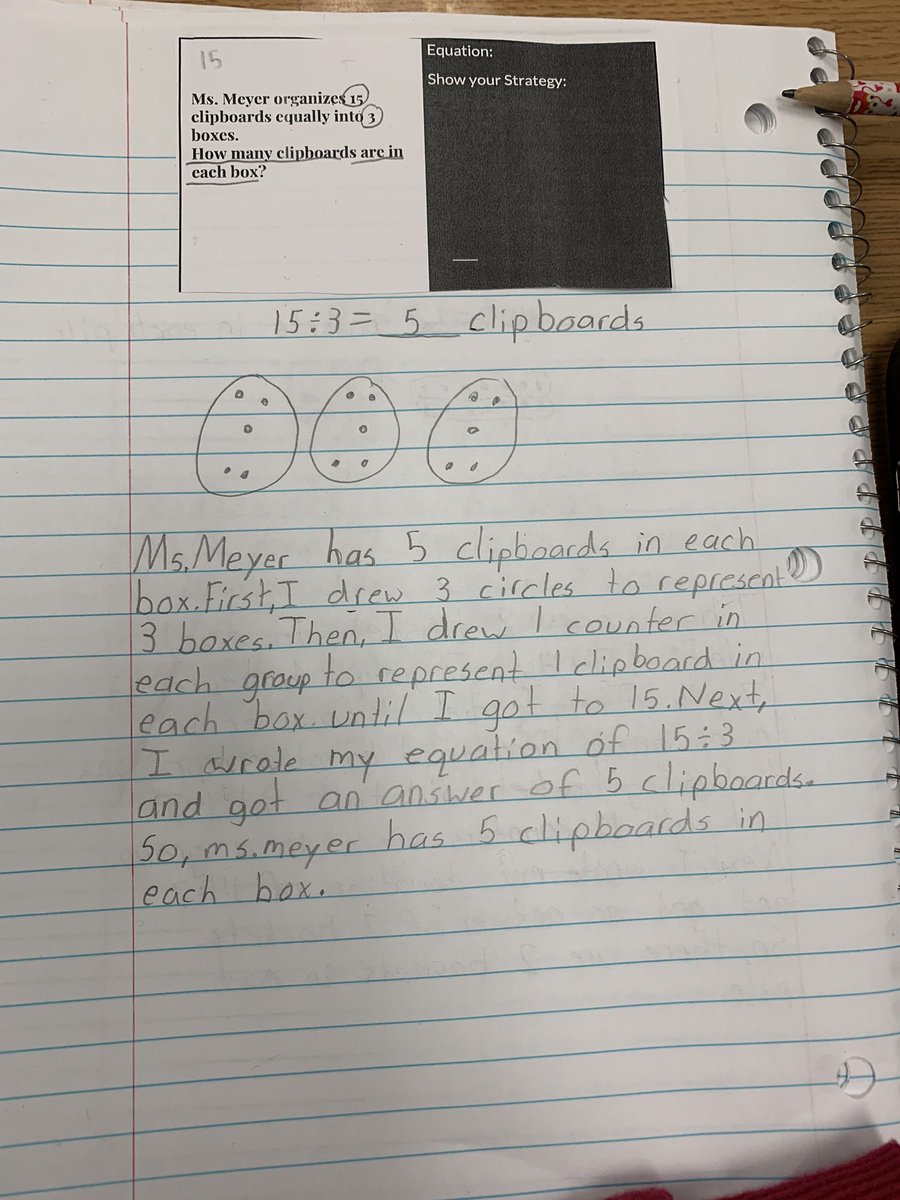 15
Ms. Meyer organizes 15
clipboards equally into 3
boxes.
How many clipboards are in
each box?
Equation:
Show your Strategy:
15÷3= 5 clipboards
Ms. Meyer has 5 clipboards in each
box. First, I drew 3 circles to represent
3 boxes. Then, I drew 1 counter in
each group to represent 1 clipboard in
each box. until I got to 15. Next,
I wrote my equation of 15÷3
and got an answer of 5 clipboards.
So, ms. meyer has 5 clipboards in
each box.